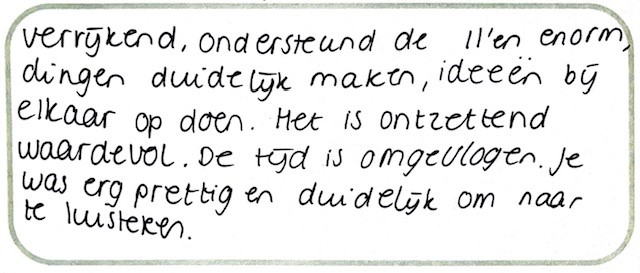 verrijkend, ondersteund de ll'en enorm,
dingen duidelijk maken, ideeën bij
elkaar op doen. Het is ontzettend
waardevol. De tijd is omgevlogen. Je
was erg prettig en duidelijk om naar
te luisteren.